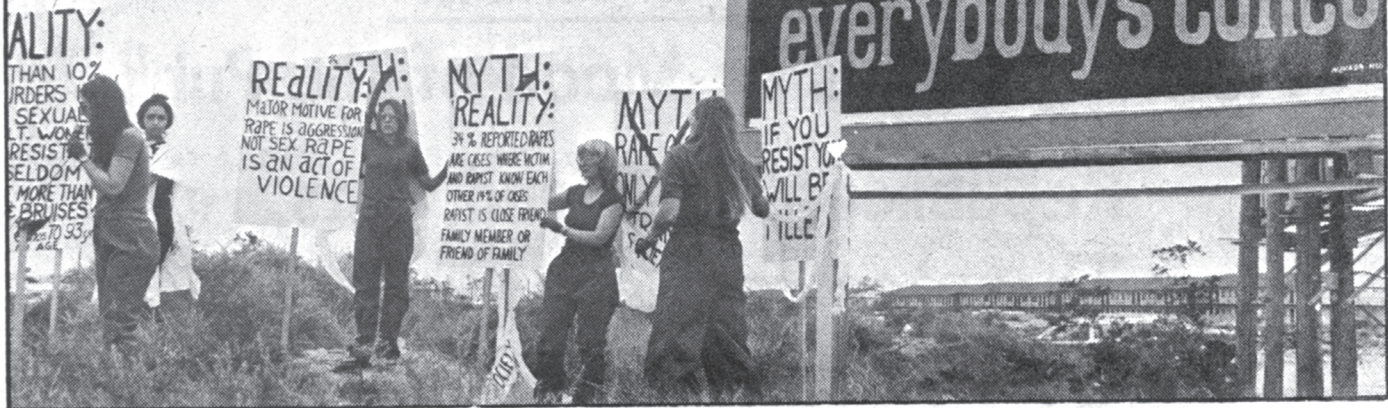 ALITY:
THAN 10%
URDERS
SEXUAL
LT. WOMEN
RESIST
SELDOM
MORE THAN
BRUISES
TO 93
AGE
REALITY:
MAJOR MOTIVE FOR
RAPE IS AGGRESSION
NOT SEX. RAPE
IS AN ACT OF
VIOLENCE
TH:
MYTH:
REALITY:
34% REPORTED RAPES
ARE CASES WHERE VICTIM
AND RAPIST KNOW EACH
OTHER 14% OF CASES
RAPIST IS CLOSE FRIEND
FAMILY MEMBER OR
FRIEND OF FAMILY
MYT
RAPE
ONLY
TO
MYTH:
IF YOU
RESIST YOU
WILL BE
everybody's conce